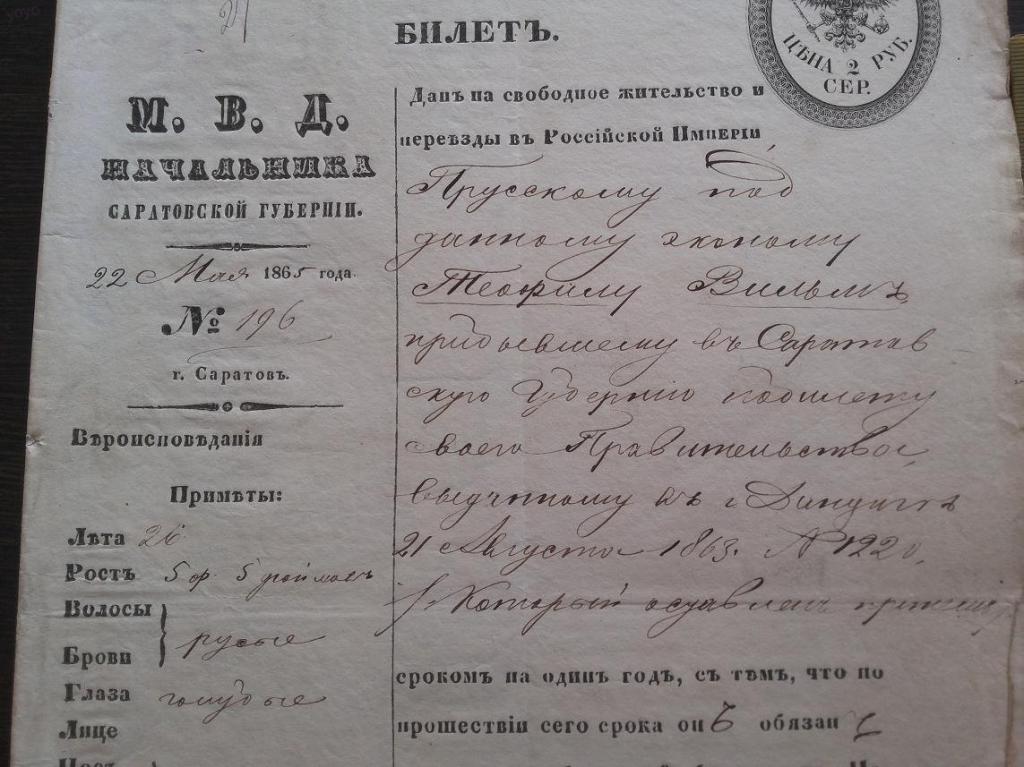 БИЛЕТЪ.
ЦѢНА 2 РУБ.
СЕР.
М. В. Д.
НАЧАЛЬНИКА
САРАТОВСКОЙ ГУБЕРНІИ.
22 Мая 1865 года
№ 196
г. Саратовъ.
Вѣроисповѣданія
Примѣты:
Лѣта 26
Ростъ 5 фу. 5 дюймовъ
Волосы
русые
Брови
Глаза голубые
Лице
Носъ
Данъ на свободное жительство и
переѣзды въ Россійской Имперіи
Прусскому под
данному эконому
Теофилу Вильмъ
прибывшему въ Саратов
скую Губернію
своего Правительства,
выданному въ г. Данцигѣ
21 Августа 1863. № 1220
Который
срокомъ на одинъ годъ, съ тѣмъ, что по
прошествіи сего срока онъ обязан